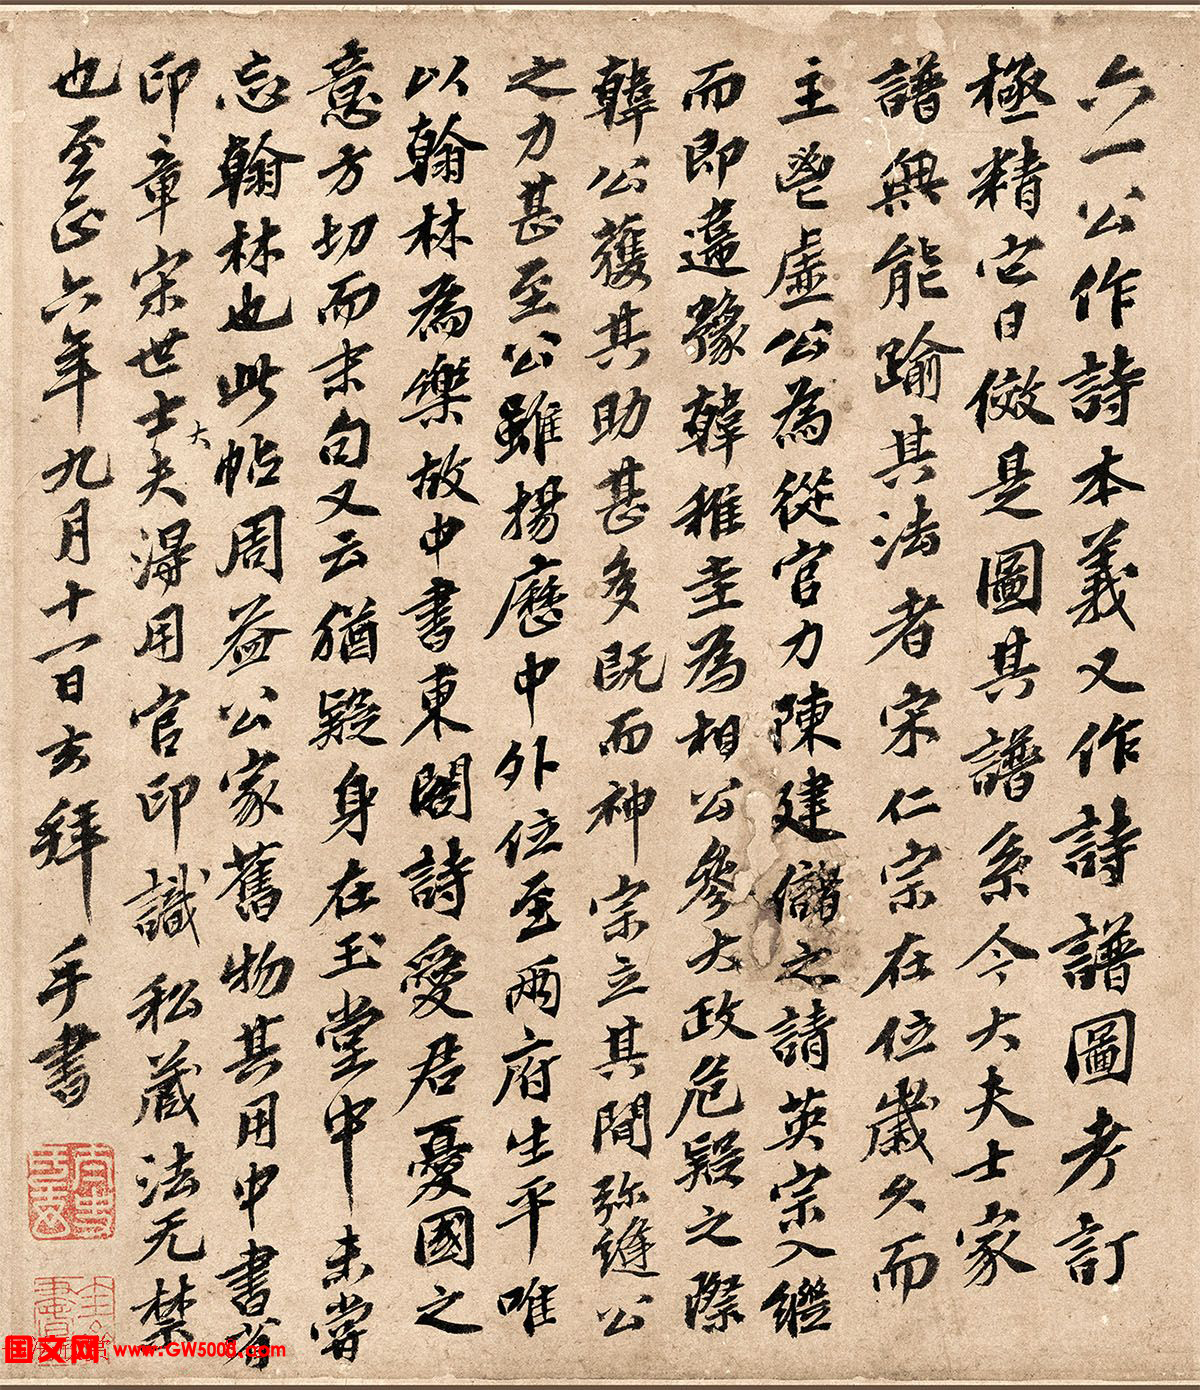 六一公作詩本義又作詩譜圖考訂
極精它日倣是圖其譜系今大夫士家
譜無能踰其法者宋仁宗在位歲久而
主鬯虛公為從官力陳建儲之請英宗入繼
而即違豫韓稚圭為相公參大政危疑之際
韓公獲其助甚多既而神宗立其間弥縫公
之力甚至公雖揚歷中外位至兩府生平唯
以翰林為樂故中書東閣詩愛君憂國之
意方切而末句又云猶疑身在玉堂中未嘗
忘翰林也此帖周益公家舊物其用中書省
印章宋世士大夫得用官印識私藏法无禁
也至正六年九月十一日玄拜手書
国文网 www.GW5008.com